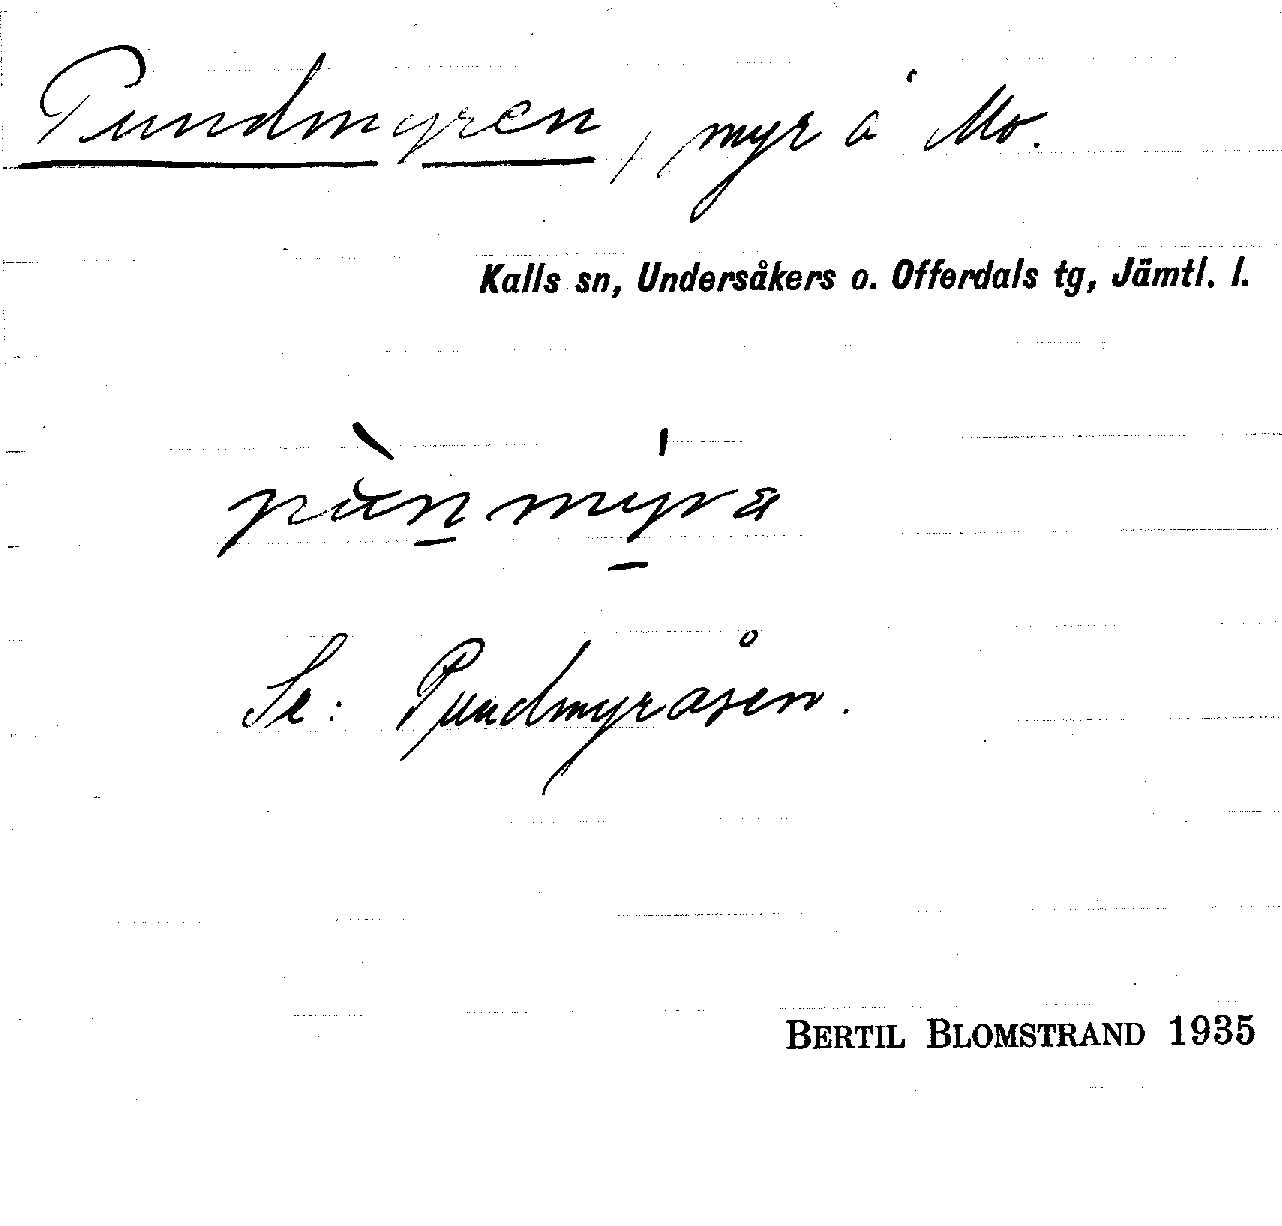 Pundmyren, myr å Mo.
Kalls sn, Undersåkers o. Offerdals tg, Jämtl. l.
Se: Pundmyråsen.
BERTIL BLOMSTRAND 1935